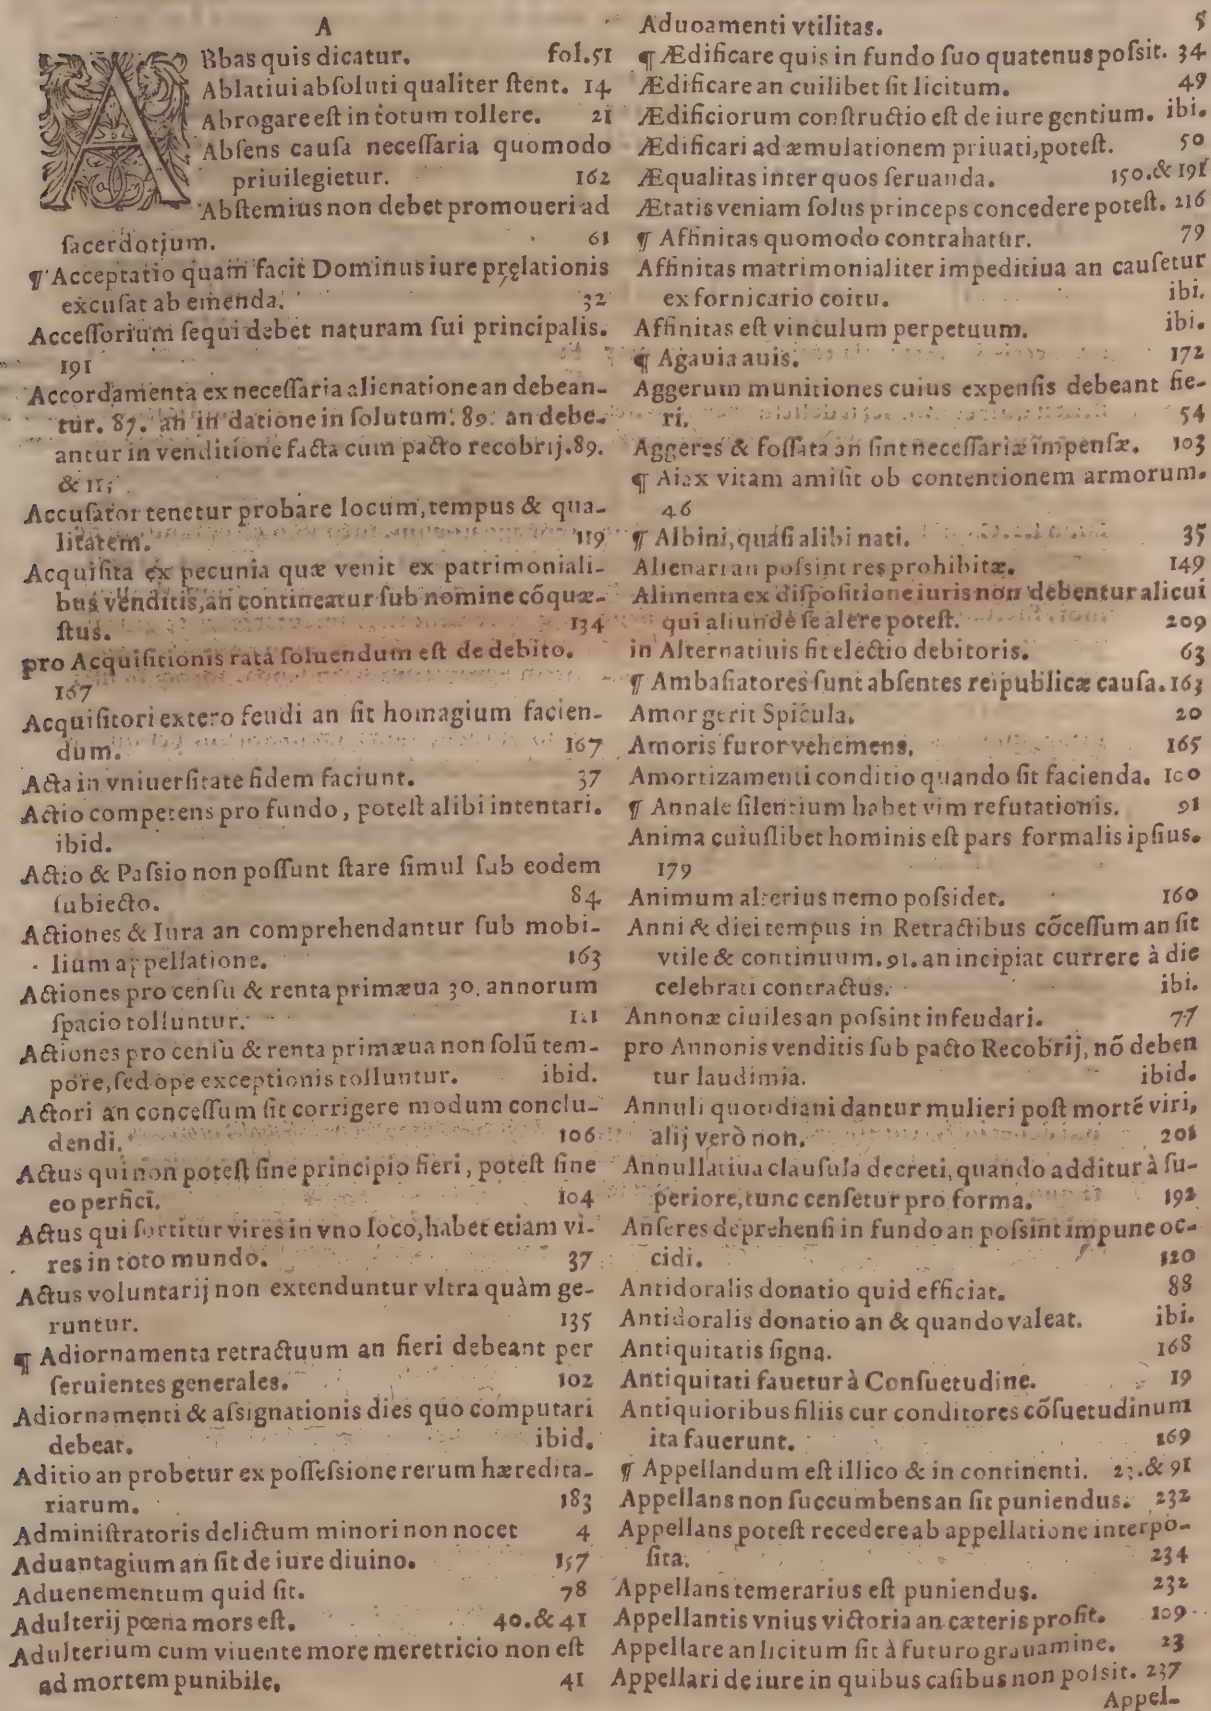 A
ABbas quis dicatur. fol.51
Ablatiui abſoluti qualiter ſtent. 14
Abrogare eſt in totum tollere. 21
Abſens cauſa neceſſaria quomodo
priuilegietur. 162
Abſtemius non debet promoueri ad
ſacerdotium. 61
¶ Acceptatio quam facit Dominus iure pręlationis
excuſat ab emenda. 32
Acceſſorium ſequi debet naturam ſui principalis.
191
Accordamenta ex neceſſaria alienatione an debean-
tur. 87. an in datione in ſolutum. 89. an debe-
antur in venditione facta cum pacto recobrij.89.
&
Accuſator tenetur probare locum, tempus & qua-
litatem. 119
Acquiſita ex pecunia quæ venit ex patrimoniali-
bus venditis, an contineatur ſub nomine cõquæ-
ſtus. 134
pro Acquiſitionis rata ſoluendum eſt de debito.
167
Acquiſitori extero feudi an ſit homagium facien-
dum. 167
Acta in vniuerſitate fidem faciunt. 37
Actio competens pro fundo, poteſt alibi intentari.
ibid.
Actio & Paſsio non poſſunt ſtare ſimul ſub eodem
ſubiecto. 84
Actiones & Iura an comprehendantur ſub mobi-
lium appellatione. 163
Actiones pro cenſu & renta primæua 30. annorum
ſpacio tolluntur.
Actiones pro cenſu & renta primæua non ſolũ tem-
pore, ſed ope exceptionis tolluntur. ibid.
Actori an conceſſum ſit corrigere modum conclu-
dendi. 106
Actus qui non poteſt ſine principio fieri, poteſt ſine
eo perfici. 104
Actus qui ſortitur vires in vno loco, habet etiam vi-
res in toto mundo. 37
Actus voluntarij non extenduntur vltra quàm ge-
runtur. 135
¶ Adiornamenta retractuum an fieri debeant per
ſeruientes generales. 102
Adiornamenti & aſsignationis dies quo computari
debeat. ibid.
Aditio an probetur ex poſſeſsione rerum hæredita-
riarum. 183
Adminiſtratoris delictum minori non nocet 4
Aduantagium an ſit de iure diuino. 157
Aduenementum quid ſit. 78
Adulterij pœna mors eſt. 40.& 41
Adulterium cum viuente more meretricio non eſt
ad mortem punibile. 41
Aduoamenti vtilitas. 5
¶ Ædificare quis in fundo ſuo quatenus poſsit. 34
Ædificare an cuilibet ſit licitum. 49
Ædificiorum conſtructio eſt de iure gentium. ibi.
Ædificari ad æmulationem priuati, poteſt. 50
Æqualitas inter quos ſeruanda. 150.& 191
Ætatis veniam ſolus princeps concedere poteſt. 216
¶ Affinitas quomodo contrahatur. 79
Affinitas matrimonialiter impeditiua an cauſetur
ex fornicario coitu. ibi.
Affinitas eſt vinculum perpetuum. ibi.
¶ Agauia auis. 172
Aggerum munitiones cuius expenſis debeant fie-
ri. 54
Aggeres & foſſata an ſint neceſſariæ impenſæ. 103
¶ Aiax vitam amiſit ob contentionem armorum.
46
¶ Albini, quaſi alibi nati. 35
Alienari an poſsint res prohibitæ. 149
Alimenta ex diſpoſitione iuris non debentur alicui
qui aliundè ſe alere poteſt. 209
in Alternatiuis fit electio debitoris. 63
¶ Ambaſiatores ſunt abſentes reipublicæ cauſa. 163
Amor gerit Spicula. 20
Amoris furor vehemens. 165
Amortizamenti conditio quando ſit facienda. 100
¶ Annale ſilentium habet vim refutationis. 91
Anima cuiuſlibet hominis eſt pars formalis ipſius.
179
Animum alterius nemo poſsidet. 160
Anni & diei tempus in Retractibus cõceſſum an ſit
vtile & continuum. 91. an incipiat currere à die
celebrati contractus. ibi.
Annonæ ciuiles an poſsint infeudari. 77
pro Annonis venditis ſub pacto Recobrij, nõ deben
tur laudimia. ibid.
Annuli quotidiani dantur mulieri poſt mortẽ viri,
alij verò non. 201
Annullatiua clauſula decreti, quando additur à ſu-
periore, tunc cenſetur pro forma. 192
Anſeres deprehenſi in fundo an poſsint impune oc-
cidi. 120
Antidoralis donatio quid efficiat. 88
Antidoralis donatio an & quando valeat. ibi.
Antiquitatis ſigna. 168
Antiquitati fauetur à Conſuetudine. 19
Antiquioribus filiis cur conditores cõſuetudinum
ita fauerunt. 169
¶ Appellandum eſt illico & in continenti. & 91
Appellans non ſuccumbens an ſit puniendus. 232
Appellans poteſt recedere ab appellatione interpo-
ſita. 234
Appellans temerarius eſt puniendus. 232
Appellantis vnius victoria an cæteris proſit. 109
Appellare an licitum ſit à futuro grauamine. 23
Appellari de iure in quibus caſibus non poſsit. 237
Appel-